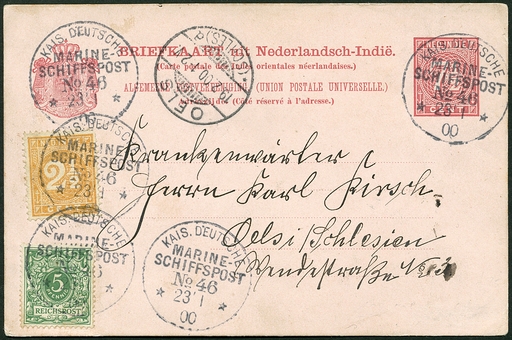 BRIEFKAART uit Nederlandsch-Indië.
(Carte postale des Indes orientales néerlandaises.)
ALGEMEENE POSTVEREENIGING (UNION POSTALE UNIVERSELLE).
(Côté réservé à l'adresse.)
KAIS. DEUTSCHE
MARINE-
SCHIFFSPOST
No 46
* 23 1 *
KAIS. DEUTSCHE
MARINE-
SCHIFFSPOST
No 46
* 23 1 *
00
OELS
KAIS. DEUTSCHE
MARINE-
SCHIFFSPOST
No 46
* 23 1
2
Krankenwärter
Herrn Karl Kirsch
Oels i/Schlesien
KAIS. DEUTSCHE
MARINE-
SCHIFFSPOST
5
REICHSPOST
KAIS. DEUTSCHE
MARINE-
SCHIFFSPOST
No 46
* 23 1 *
00